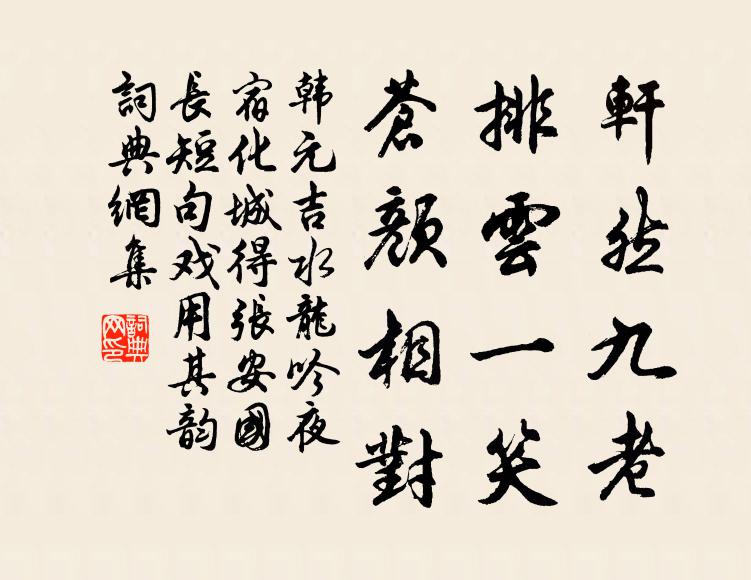 軒然九老
排雲一笑
蒼顏相對
韩元吉水龍吟夜
宿化城得張安國
長短句戏用其韵
詞典網集
詞典
网印